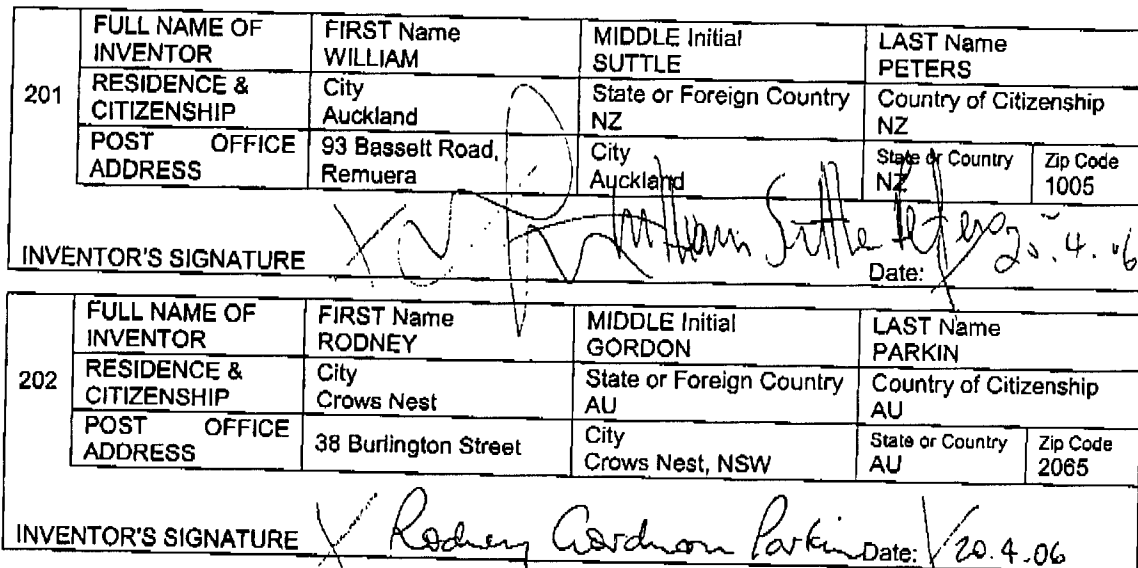 201
FULL NAME OF INVENTOR
FIRST Name
WILLIAM
MIDDLE Initial
SUTTLE
LAST Name
PETERS
RESIDENCE & CITIZENSHIP
City
Auckland
State or Foreign Country
NZ
Country of Citizenship
NZ
POST OFFICE ADDRESS
93 Bassett Road,
Remuera
City
Auckland
State or Country
NZ
Zip Code
1005
INVENTOR'S SIGNATURE X William Suttle Peters Date: 20.4.06
202
FULL NAME OF INVENTOR
FIRST Name
RODNEY
MIDDLE Initial
GORDON
LAST Name
PARKIN
RESIDENCE & CITIZENSHIP
City
Crows Nest
State or Foreign Country
AU
Country of Citizenship
AU
POST OFFICE ADDRESS
38 Burlington Street
City
Crows Nest, NSW
State or Country
AU
Zip Code
2065
INVENTOR'S SIGNATURE X Rodney Gordon Parkin Date: 20.4.06